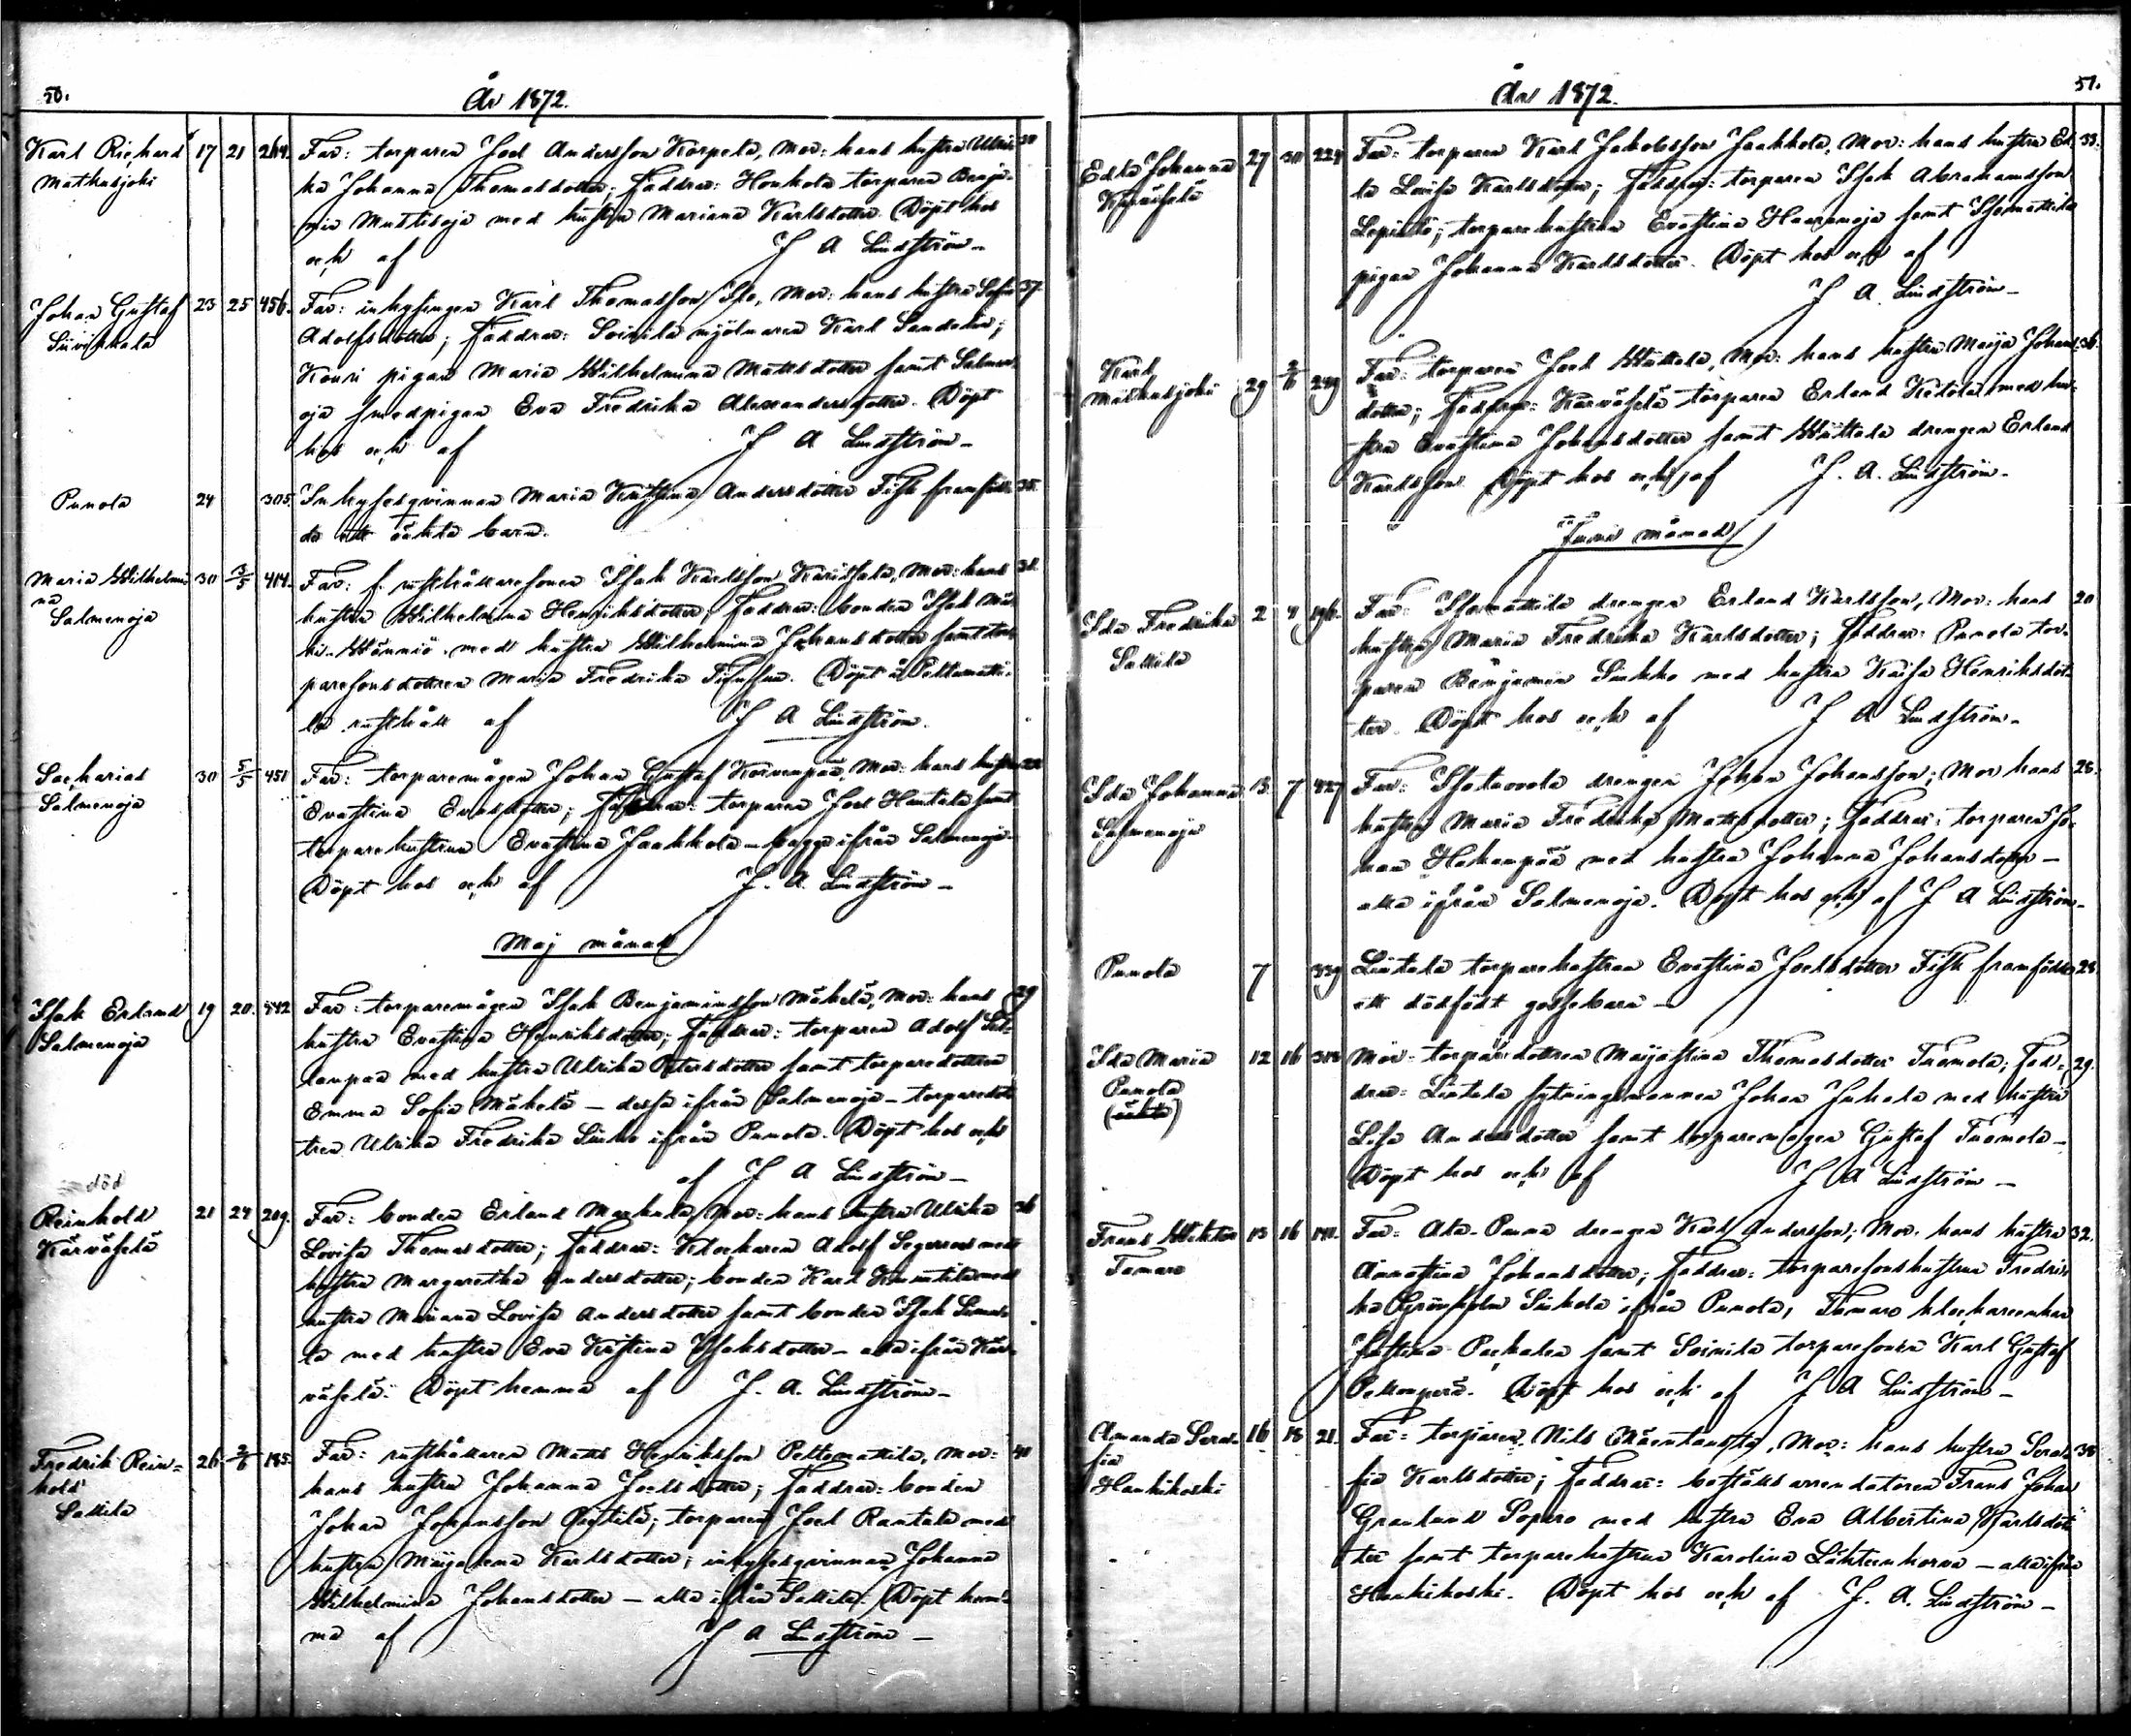 50.
År 1872.
Karl Richard 17 21 264. Far: torparen Joel Andersson Korpela, Mor: hans hustru Ulri- 30
Mathusjoki ka Johanna Thomasdotter; faddrar: Honkola torparen Benja-
min Mustisoja med hustru Mariana Karlsdotter. Döpt hos
och af J A Lindström -
Johan Gustaf 23 25 456. Far: inhysingen Karl Thomasson Iso, Mor: hans hustru Sofia 37.
Siivikkala Adolfsdotter; faddrar: Soinila mjölnaren Karl Sandelin;
Kouri pigan Maria Wilhelmina Mattsdotter samt Salmen-
oja smedpigan Eva Fredrika Alexandersdotter. Döpt
hos och af J A Lindström -
Punola 24 305. Inhysesqvinnan Maria Kristina Andersdotter Fisk framföd- 35.
de ett oäkta barn.
Maria Wilhelmi- 30 3/5 414. Far: f. rusthållaresonen Isak Karlsson Karissala, Mor: hans
na hustru Wilhelmina Henriksdotter; faddrar: bonden Isak Mä-
Salmenoja ki-Männiö med hustru Wilhelmina Johansdotter samt tor-
paresonsdottren Maria Fredrika. Döpt å Peltomatti-
la rusthåll af J A Lindström.
Sacharias 30 5/5 451 Far: torparemågen Johan Gustaf Korvenpää, Mor: hans hustru
Salmenoja Evastina Evasdotter; faddrar: torparen Joel Hantala samt
torparehustrun Evastina Jaakkola - bägge ifrån Salmenoja.
Döpt hos och af J. A. Lindström -
Maj månad
Isak Erland 19 20. 442 Far: torparemågen Isak Benjaminsson Mäkelä, Mor: hans 29
Salmenoja hustru Evastina Henriksdotter; faddrar: torparen Adolf
med hustru Ulrika Petersdotter samt torparedottren
Emma Sofia Mäkelä - dessa ifrån Salmenoja - torparedot-
tren Ulrika Fredrika ifrån Punola. Döpt hos och
af J A Lindström -
död
Reinhold 21 24 209. Far: bonden Erland Markula, Mor: hans hustru Ulrika 36
Kärväselä Lovisa Thomasdotter; faddrar: Klockaren Adolf Segerrod med
hustru Margaretha Andersdotter; bonden Karl med
hustru Mariana Lovisa Andersdotter samt bonden Isak
la med hustru Eva Kristina Isaksdotter - alla ifrån Kär-
väselä. Döpt hemma af J. A. Lindström -
Fredrik Rein- 26. 2/6 185. Far: rusthållaren Matts Henriksson Peltomattila, Mor: 40
hold hans hustru Johanna Joelsdotter; faddrar: bonden
Sallila Johan Johansson Penttilä; torparen Joel Rantala med
hustru Maijalena Karlsdotter; inhysesqvinnan Johanna
Wilhelmina Johansdotter - alla ifrån Sallila. Döpt hem-
ma af J A Lindström -
År 1872.
51.
Edla Johanna 27 30 224 Far: torparen Karl Jakobsson Jaakkola, Mor: hans hustru Ed- 33.
Kärväselä la Lovisa Karlsdotter; faddrar: torparen Isak Abrahamsson
Lepistö; torparehustrun Evastina Haaranoja samt Isomattila
pigan Johanna Karlsdotter. Döpt hos och af
J A. Lindström -
Karl 29 2/6 249 Far: torparen Joel Wättala, Mor: hans hustru Maija Johans- 36.
Mathusjoki dotter; faddrar: Kärväselä torparen Erland Ketola med hu-
stru Evastina Johansdotter samt Wättala drengen Erland
Karlsson. Döpt hos och af J. A. Lindström -
Juni månad
Ida Fredrika 2 4 196. Far: Isomattila drengen Erland Karlsson, Mor: hans 20
Sallila hustru Maria Fredrika Karlsdotter; faddrar: Punola tor-
paren Benjamin Sinkko med hustru Kaisa Henriksdot-
ter. Döpt hos och af J A Lindström -
Ida Johanna 13 7 427 Far: Isotavola drengen Johan Johansson; Mor hans 28.
Salmenoja hustru Maria Fredrika Mattsdotter; faddrar: torparen Jo-
han Hakanpää med hustru Johanna Johansdotter -
alla ifrån Salmenoja. Döpt hos och af J A Lindström -
Punola 7 339 Lintala torparehustrun Evastina Joelsdotter Fisk framfödde 28.
ett dödfödt gossebarn -
Ida Maria 12 16 318 Mor: torparedottren Maijastina Thomasdotter Tuomola; fad- 29.
Punola drar: Lintala sytningsmannen Johan Juhola med hustru
(oäkta) Lisa Andersdotter samt torparemågen Gustaf Tuomola -
Döpt hos och af J A Lindström -
Frans Wiktor 13 16 141. Far: Ala-Punna drengen Karl Andersson; Mor: hans hustru 32.
Tamare Annastina Johansdotter; faddrar: torparesonshustrun Fredri-
ka Grönholm Sinkola ifrån Punola, Tamare klockareenkan
Justina Packalen samt Soinila torparesonen Karl Gustaf
Peltonperä. Döpt hos och af J A Lindström -
Amanda Sera- 16 18 21. Far: torparen Nils Mäentausta, Mor: hans hustru Sera- 38
fia fia Karlsdotter; faddrar: boställsarrendatoren Frans Johan
Hankikoski Granlund Sopero med hustru Eva Albertina Karlsdot-
ter samt torparehustrun Karolina Lähteenkorva - alla ifrån
Hankikoski. Döpt hos och af J. A. Lindström -